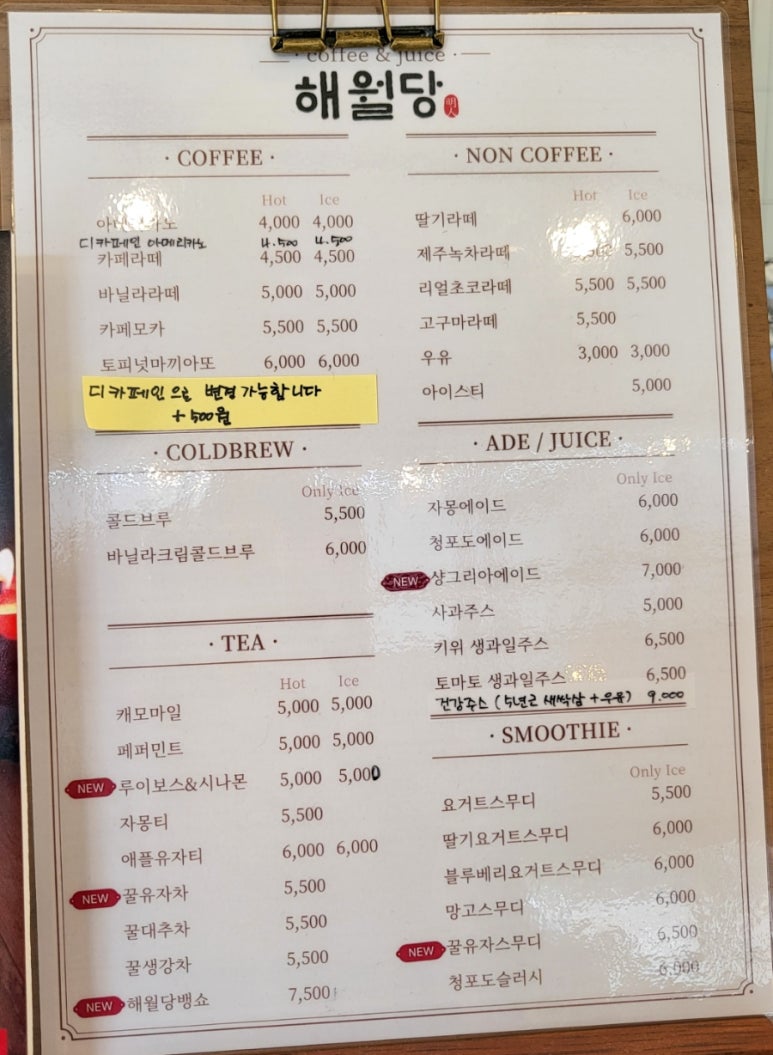 · coffee & juice ·
해월당 明人
· COFFEE ·
Hot Ice
4,000 4,000
디카페인 아메리카노 4.500 4.500
카페라떼 4,500 4,500
바닐라라떼 5,000 5,000
카페모카 5,500 5,500
토피넛마끼아또 6,000 6,000
디카페인으로 변경 가능합니다
+500원
· COLDBREW ·
Only Ice
콜드브루 5,500
바닐라크림콜드브루 6,000
· TEA ·
Hot Ice
캐모마일 5,000 5,000
페퍼민트 5,000 5,000
NEW 루이보스&시나몬 5,000 5,000
자몽티 5,500
애플유자티 6,000 6,000
NEW 꿀유자차 5,500
꿀대추차 5,500
꿀생강차 5,500
NEW 해월당뱅쇼 7,500
· NON COFFEE ·
Hot Ice
딸기라떼 6,000
제주녹차라떼 5,500
리얼초코라떼 5,500 5,500
고구마라떼 5,500
우유 3,000 3,000
아이스티 5,000
· ADE / JUICE ·
Only Ice
자몽에이드 6,000
청포도에이드 6,000
NEW 샹그리아에이드 7,000
사과주스 5,000
키위 생과일주스 6,500
토마토 생과일주스 6,500
건강주스 (5년근 새싹삼+우유) 9.000
· SMOOTHIE ·
Only Ice
요거트스무디 5,500
딸기요거트스무디 6,000
블루베리요거트스무디 6,000
망고스무디 6,000
NEW 꿀유자스무디 6,500
청포도슬러시 6,000